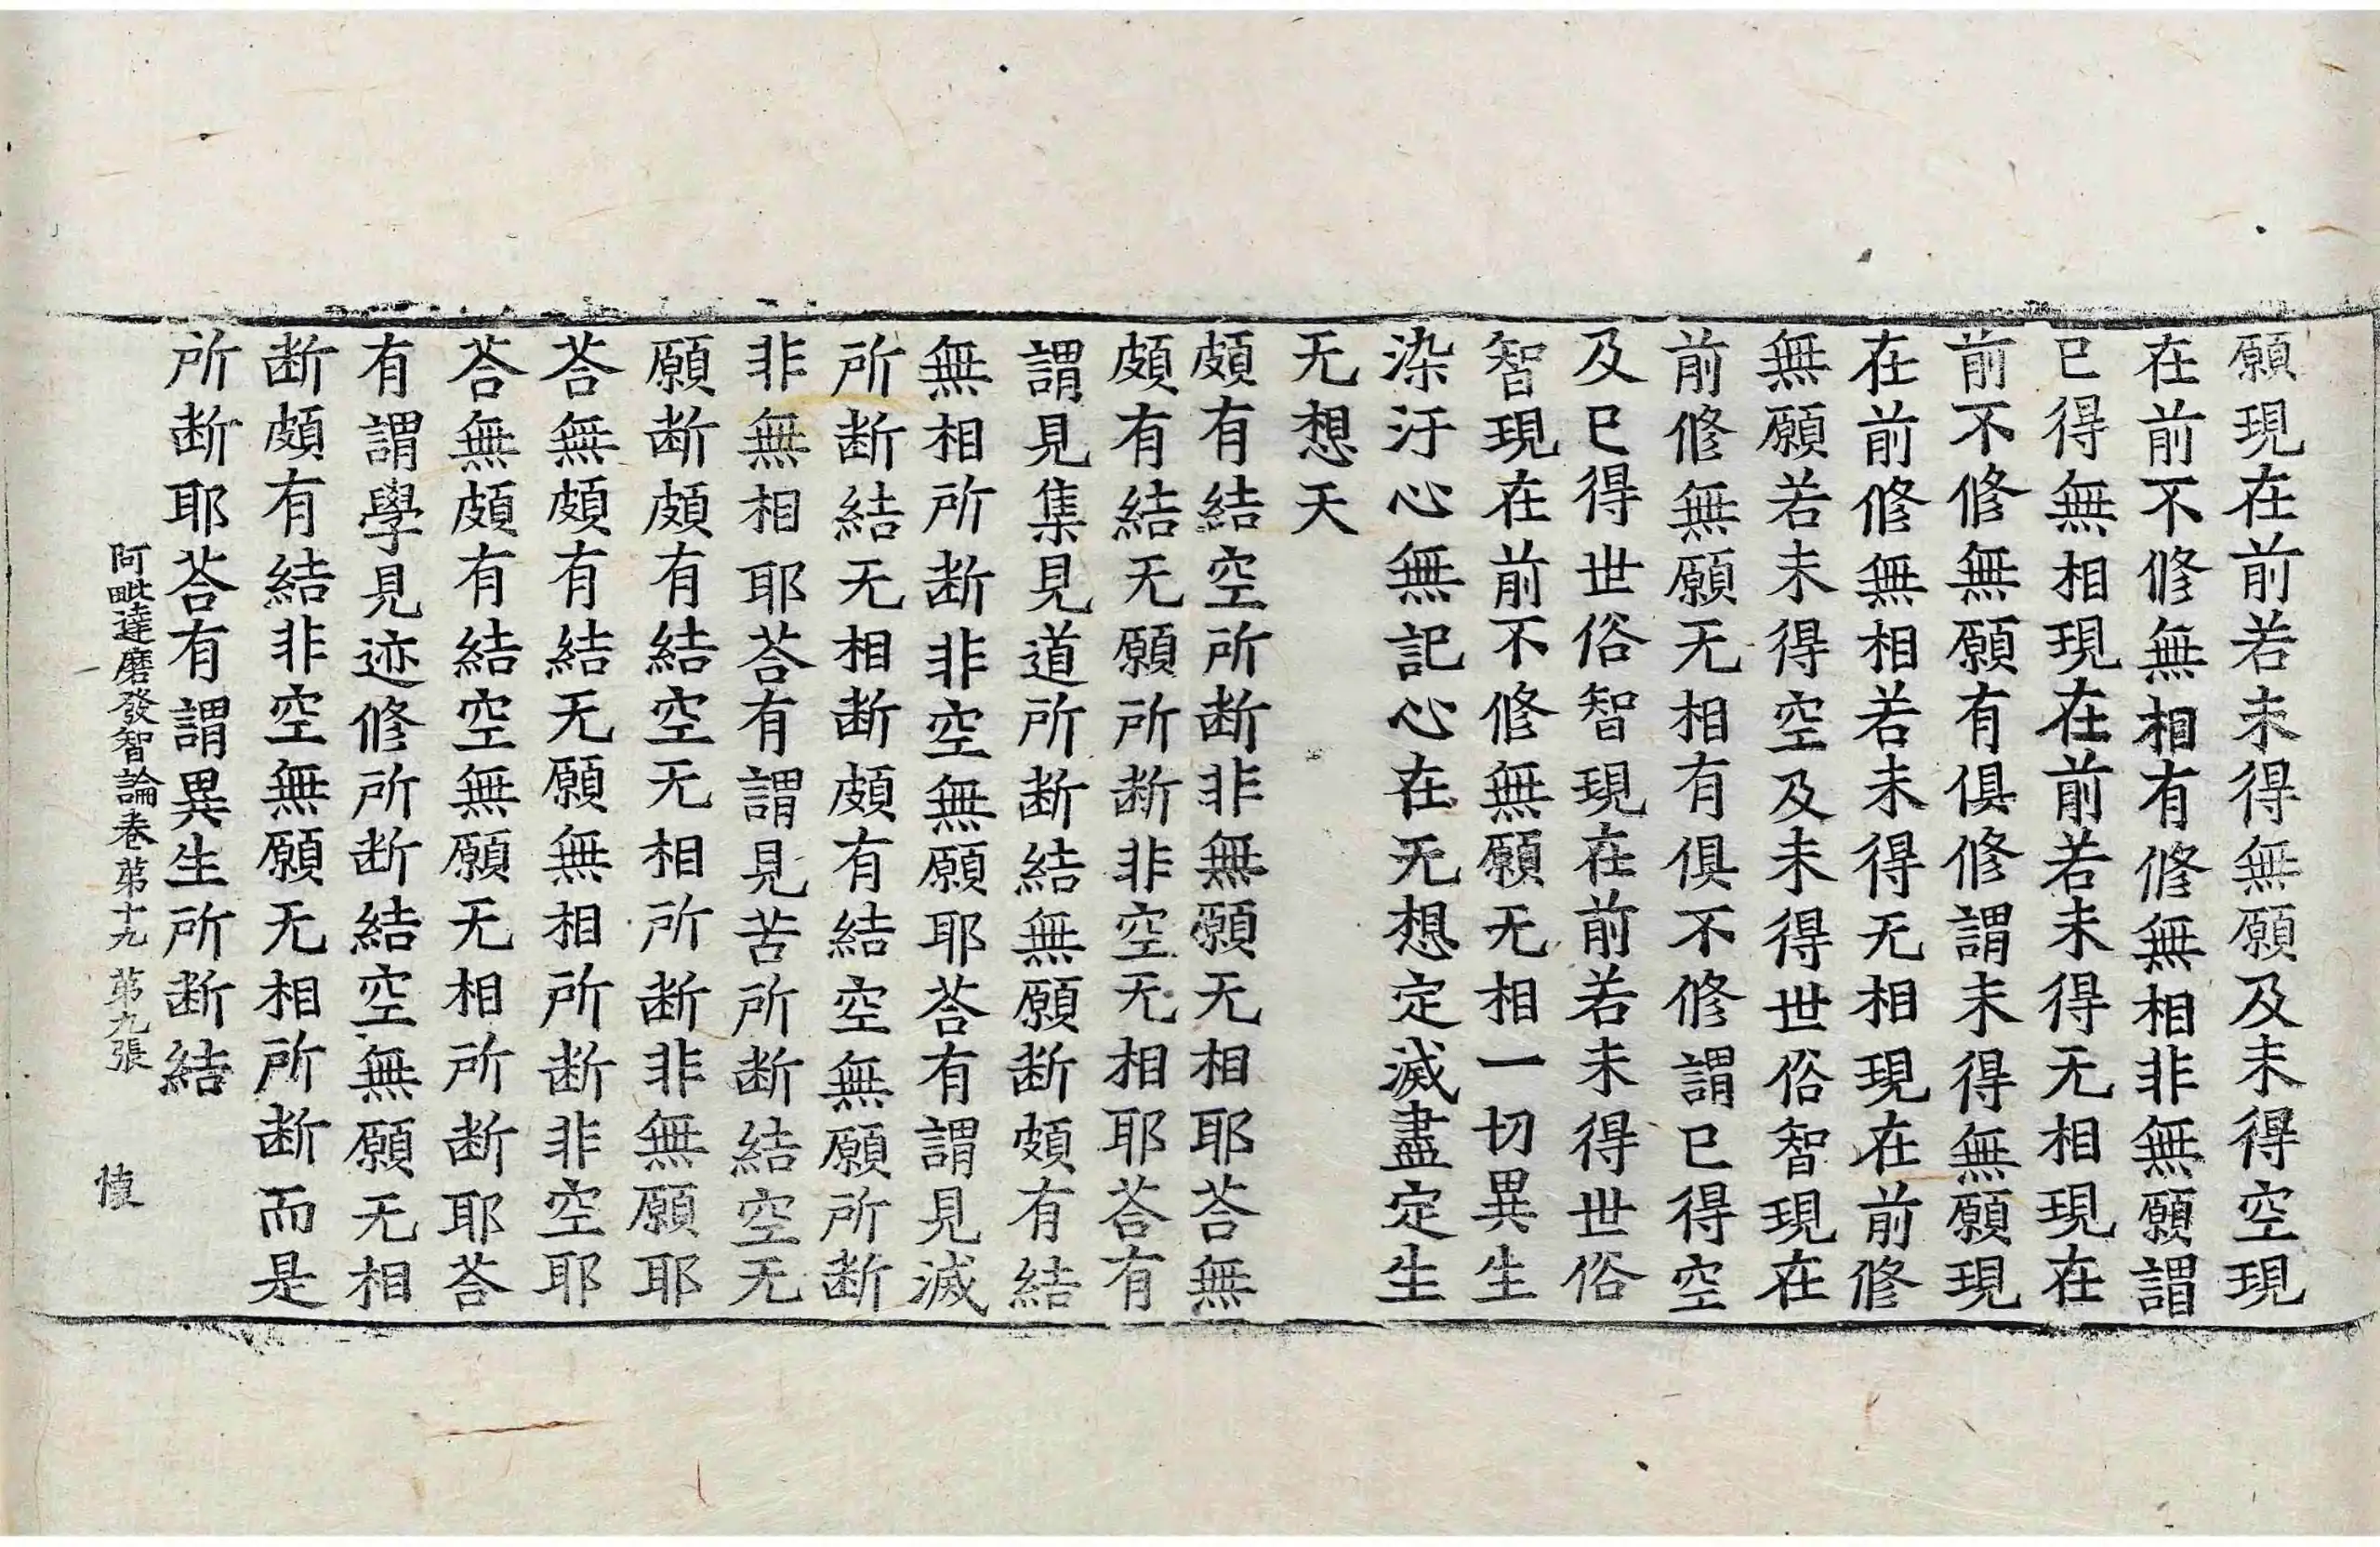 願現在前若未得無願及未得空現
在前不修無相有修無相非無願謂
已得無相現在前若未得无相現在
前不修無願有俱修謂未得無願現
在前修無相若未得无相現在前修
無願若未得空及未得世俗智現在
前修無願无相有俱不修謂已得空
及已得世俗智現在前若未得世俗
智現在前不修無願无相一切異生
染汙心無記心在无想定滅盡定生
无想天
頗有結空所斷非無願无相耶荅無
頗有結无願所斷非空无相耶荅有
謂見集見道所斷結無願斷頗有結
無相所斷非空無願耶荅有謂見滅
所斷結无相斷頗有結空無願所斷
非無相耶荅有謂見苦所斷結空无
願斷頗有結空无相所斷非無願耶
荅無頗有結无願無相所斷非空耶
荅無頗有結空無願无相所斷耶荅
有謂學見迹修所斷結空無願无相
斷頗有結非空無願无相所斷而是
所斷耶荅有謂異生所斷結
阿毗達磨發智論卷第十九 第九張 慎